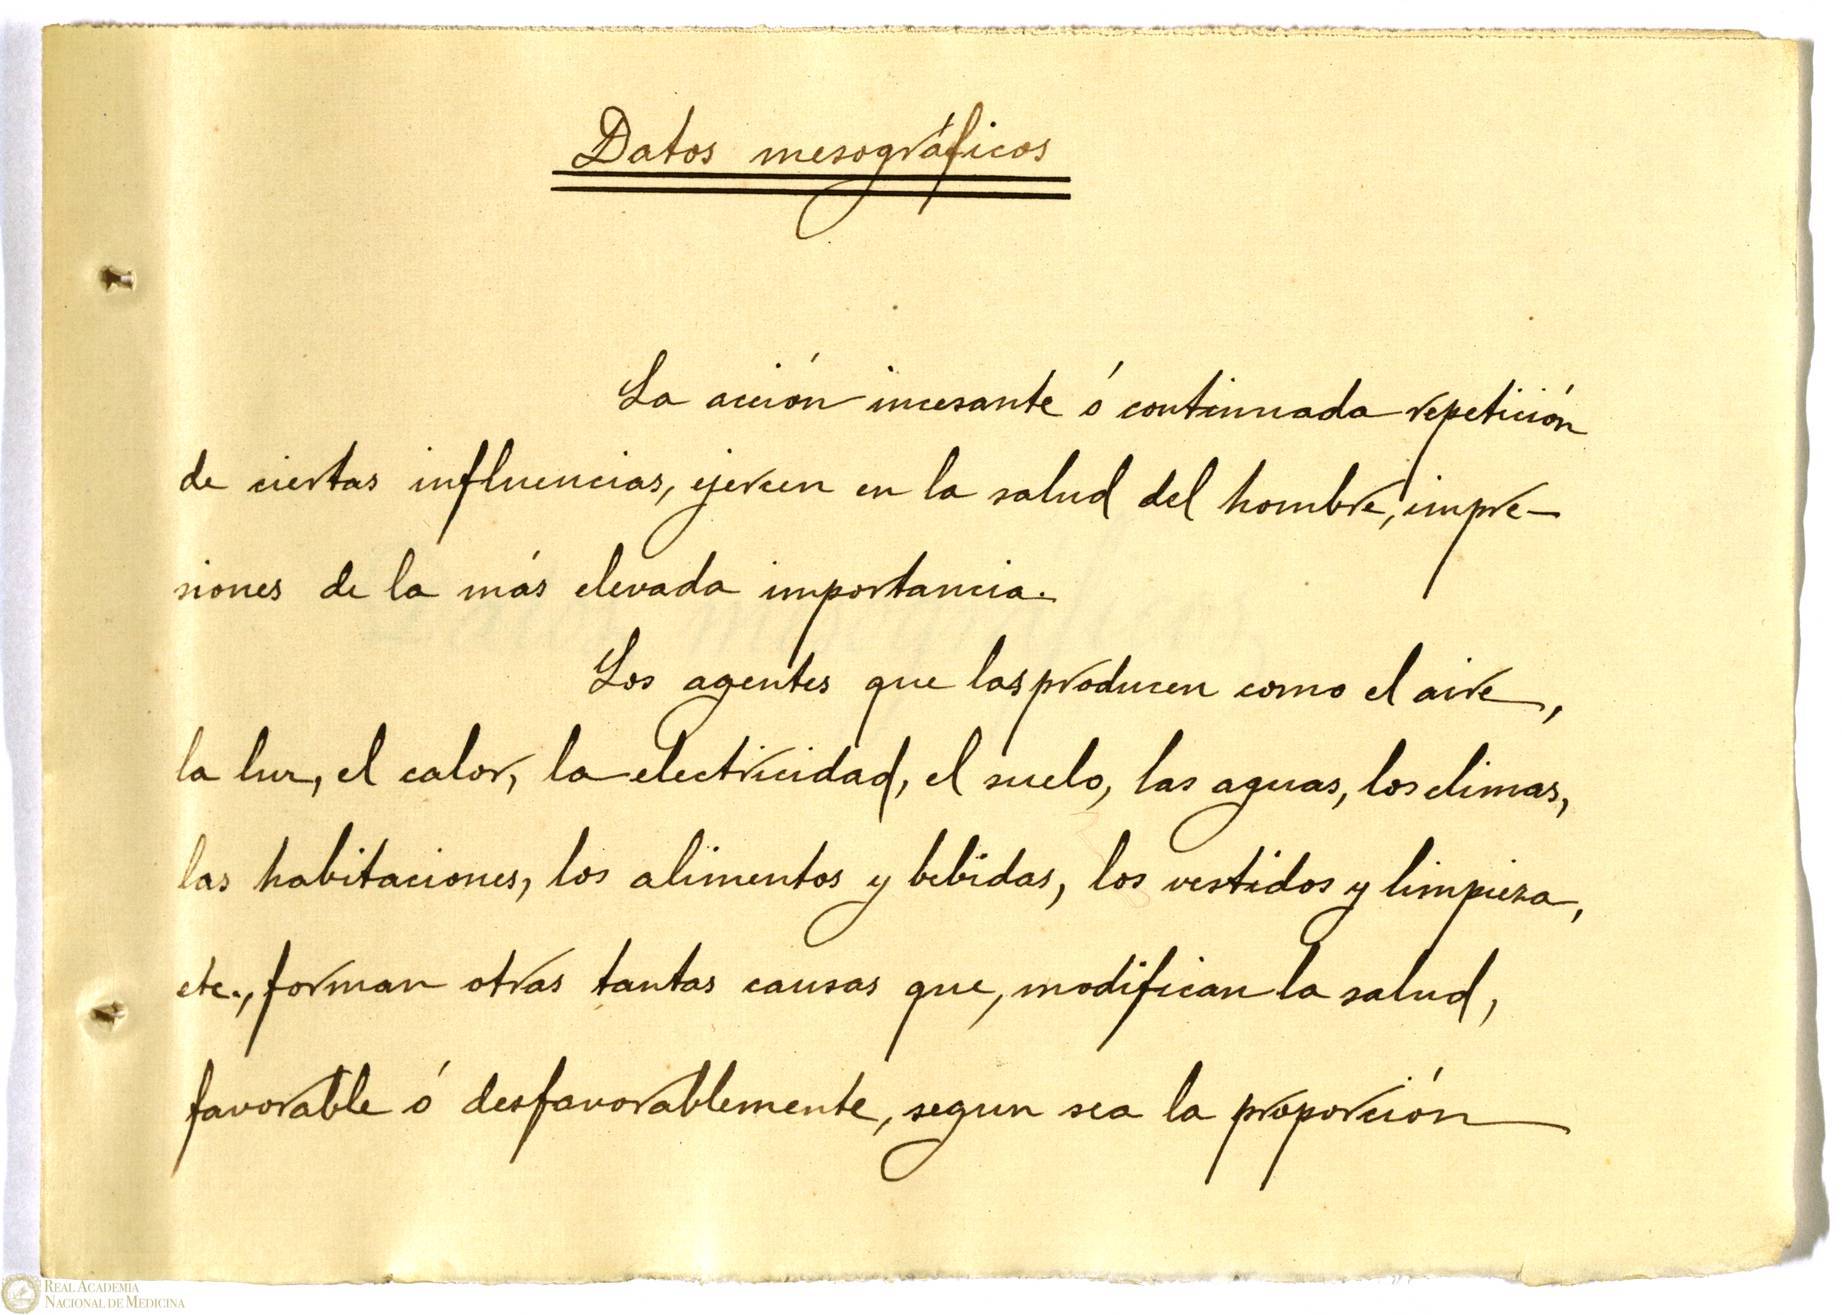 Datos mesográficos
La acción incesante ó continuada repetición
de ciertas influencias, ejercen en la salud del hombre, impre-
siones de la más elevada importancia.
Los agentes que las producen como el aire,
la luz, el calor, la electricidad, el suelo, las aguas, los climas,
las habitaciones, los alimentos y bebidas, los vestidos y limpieza,
etc., forman otras tantas causas que, modifican la salud,
favorable ó desfavorablemente, segun sea la proporción
REAL ACADEMIA
NACIONAL DE MEDICINA